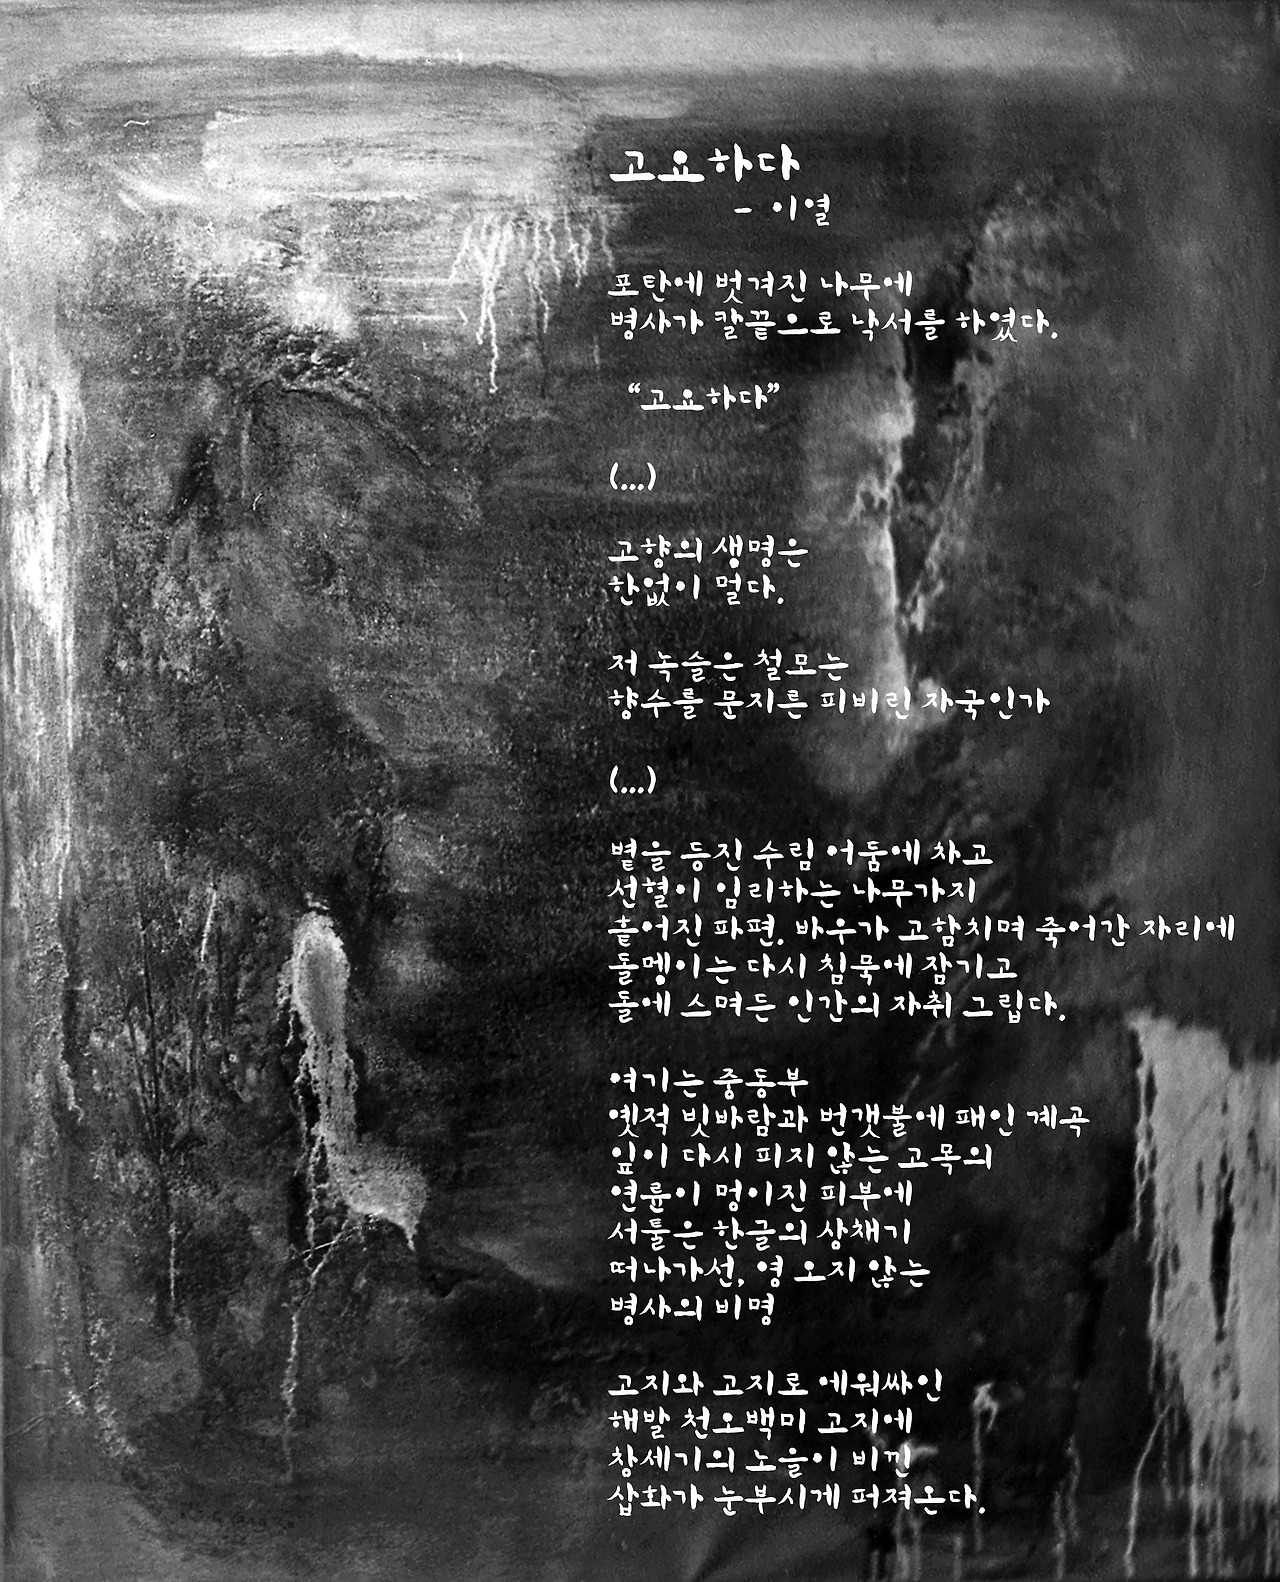 고요하다
- 이열
포탄에 벗겨진 나무에
병사가 칼끝으로 낙서를 하였다.
“고요하다”
(...)
고향의 생명은
한없이 멀다.
저 녹슬은 철모는
향수를 문지른 피비린 자국인가
(...)
볕을 등진 수림 어둠에 차고
선혈이 임리하는 나무가지
흩어진 파편. 바우가 고함치며 죽어간 자리에
돌멩이는 다시 침묵에 잠기고
돌에 스며든 인간의 자취 그립다.
여기는 중동부
옛적 빗바람과 번갯불에 패인 계곡
잎이 다시 피지 않는 고목의
연륜이 멍이진 피부에
서툴은 한글의 상채기
떠나가선, 영 오지 않는
병사의 비명
고지와 고지로 에워싸인
해발 천오백미 고지에
창세기의 노을이 비낀
삽화가 눈부시게 퍼져온다.